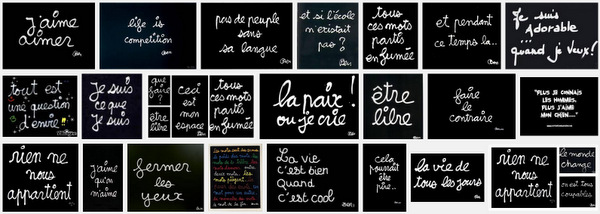 j'aime
aimer
life is
competition
Ben
pas de peuple
sans
sa langue
Ben
et si l'école
n'existait
pas ?
Ben
tous
ces mots
partis
en fumée
et pendant
ce temps là..
Ben
Je suis
Adorable
...quand je veux!
tout est
une question
d'envie!
je suis
ce que
je suis
que
faire?
être
libre
ceci
est
mon
espace
tous
ces mots
partis
en fumée
la paix!
ou je crie
Ben
être
libre
faire
le
contraire
"PLUS JE CONNAIS
LES HOMMES,
PLUS J'AIME
MON CHIEN...."
rien ne
nous
appartient
j'aime
qu'on
m'aime
fermer
les
yeux
La vie
c'est bien
Quand
c'est cool
cela
pourrait
être
pire..
la vie de
tous les jours
rien ne
nous
appartient
le monde
change
on est tous
coupables